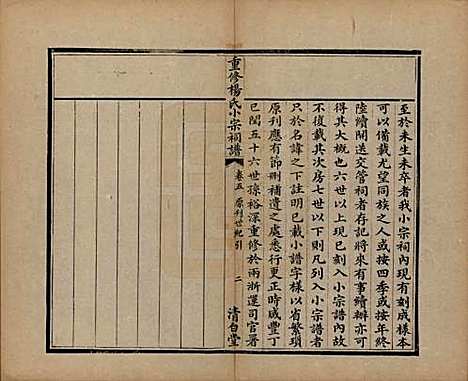 至於未生未卒者我小宗祠內現有刻成樣本
可以備載尤望同族之人或按四季或按年終
陸續開送交管祠者存記將來有事續辦亦可
得其大概可六世以上現已刻入小宗譜內故
不復載其次房七世以下則凡列入小宗譜者
只於名諱之下註明已載小譜字樣以省繁瑣
原刊應有節刪補遺之處悉行更正時咸豐丁
巳閏五十六世孫裕深重修於兩浙運司官署
重修楊氏小宗祠譜
卷五 原刊世紀引
二
清白堂